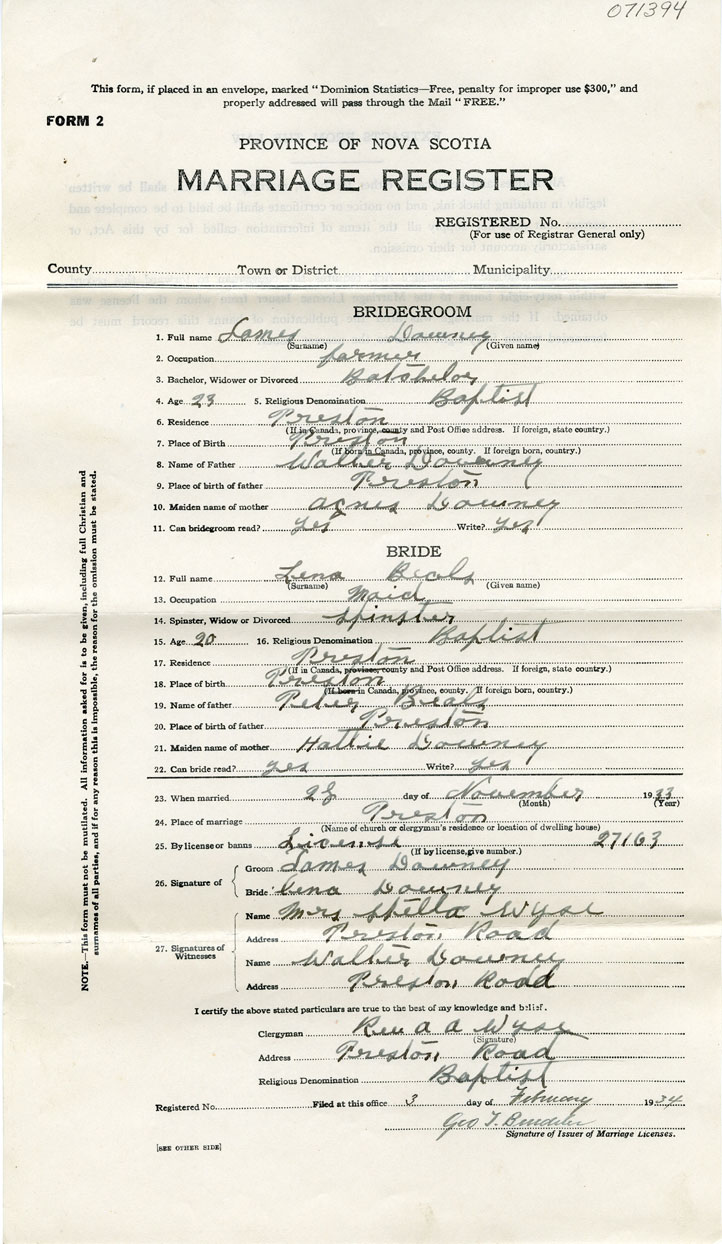 071394
This form, if placed in an envelope, marked "Dominion Statistics—Free, penalty for improper use $300," and
properly addressed will pass through the Mail "FREE."
FORM 2
PROVINCE OF NOVA SCOTIA
MARRIAGE REGISTER
REGISTERED No.
(For use of Registrar General only)
County Town or District Municipality
BRIDEGROOM
1. Full name James Downey
(Surname) (Given name)
2. Occupation farmer
3. Bachelor, Widower or Divorced Batshelor
4. Age 23 5. Religious Denomination Baptist
6. Residence Preston
(If in Canada, province, county and Post Office address. If foreign, state country.)
7. Place of Birth Preston
(If born in Canada, province, county. If foreign born, country.)
8. Name of Father Walter Downey
9. Place of birth of father Preston
10. Maiden name of mother Agnes Downey
11. Can bridegroom read? yes Write? yes
BRIDE
12. Full name Lena Beals
(Surname) (Given name)
13. Occupation Maid
14. Spinster, Widow or Divorced Spinster
15. Age 20 16. Religious Denomination Baptist
17. Residence Preston
(If in Canada, province, county and Post Office address. If foreign, state country.)
18. Place of birth Preston
(If born in Canada, province, county. If foreign born, country.)
19. Name of father Peter Beals
20. Place of birth of father Preston
21. Maiden name of mother Hattie Downey
22. Can bride read? yes Write? yes
23. When married 28 day of November 1933
(Month) (Year)
24. Place of marriage Preston
(Name of church or clergyman's residence or location of dwelling house)
25. By license or banns License 27163
(If by license, give number.)
26. Signature of
Groom James Downey
Bride Lena Downey
27. Signatures of Witnesses
Name Mrs Stella Wyse
Address Preston Road
Name Walter Downey
Address Preston Road
I certify the above stated particulars are true to the best of my knowledge and belief.
Clergyman Rev A A Wyse
(Signature)
Address Preston Road
Religious Denomination Baptist
Registered No. Filed at this office 3 day of February 1934
Geo T.
Signature of Issuer of Marriage Licenses.
[SEE OTHER SIDE]
NOTE.—This form must not be mutilated. All information asked for is to be given, including full Christian and
surnames of all parties, and if for any reason this is impossible, the reason for the omission must be stated.